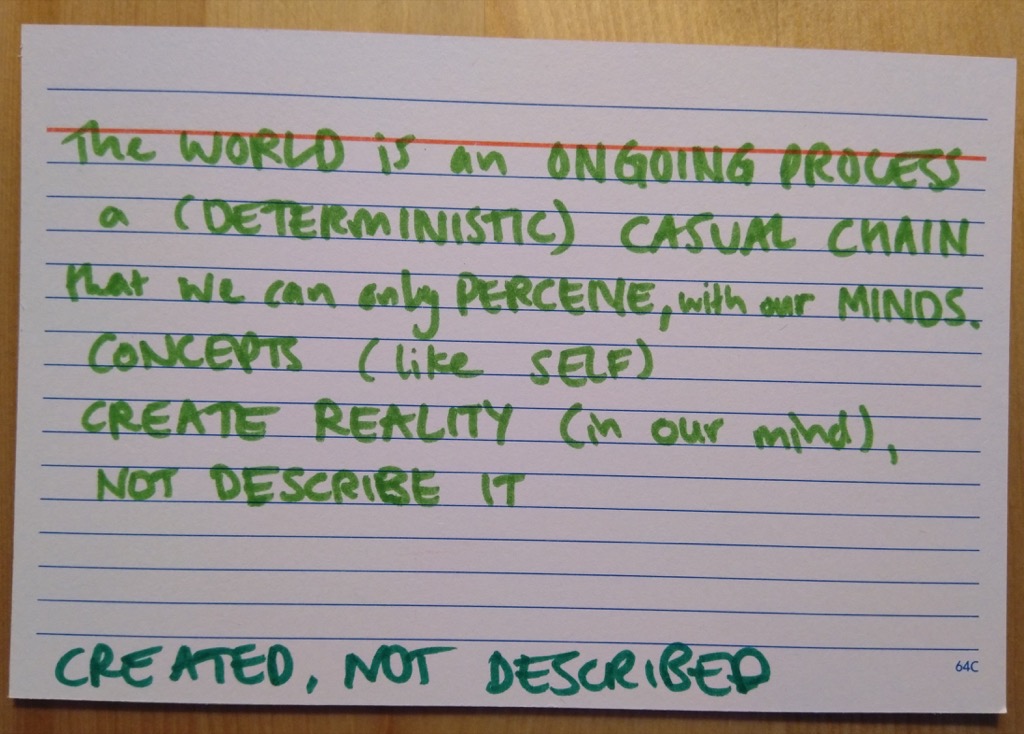 The WORLD is an ONGOING PROCESS
a (DETERMINISTIC) CASUAL CHAIN
that we can only PERCEIVE, with our MINDS.
CONCEPTS (like SELF)
CREATE REALITY (in our mind),
NOT DESCRIBE IT
CREATED, NOT DESCRIBED
64C